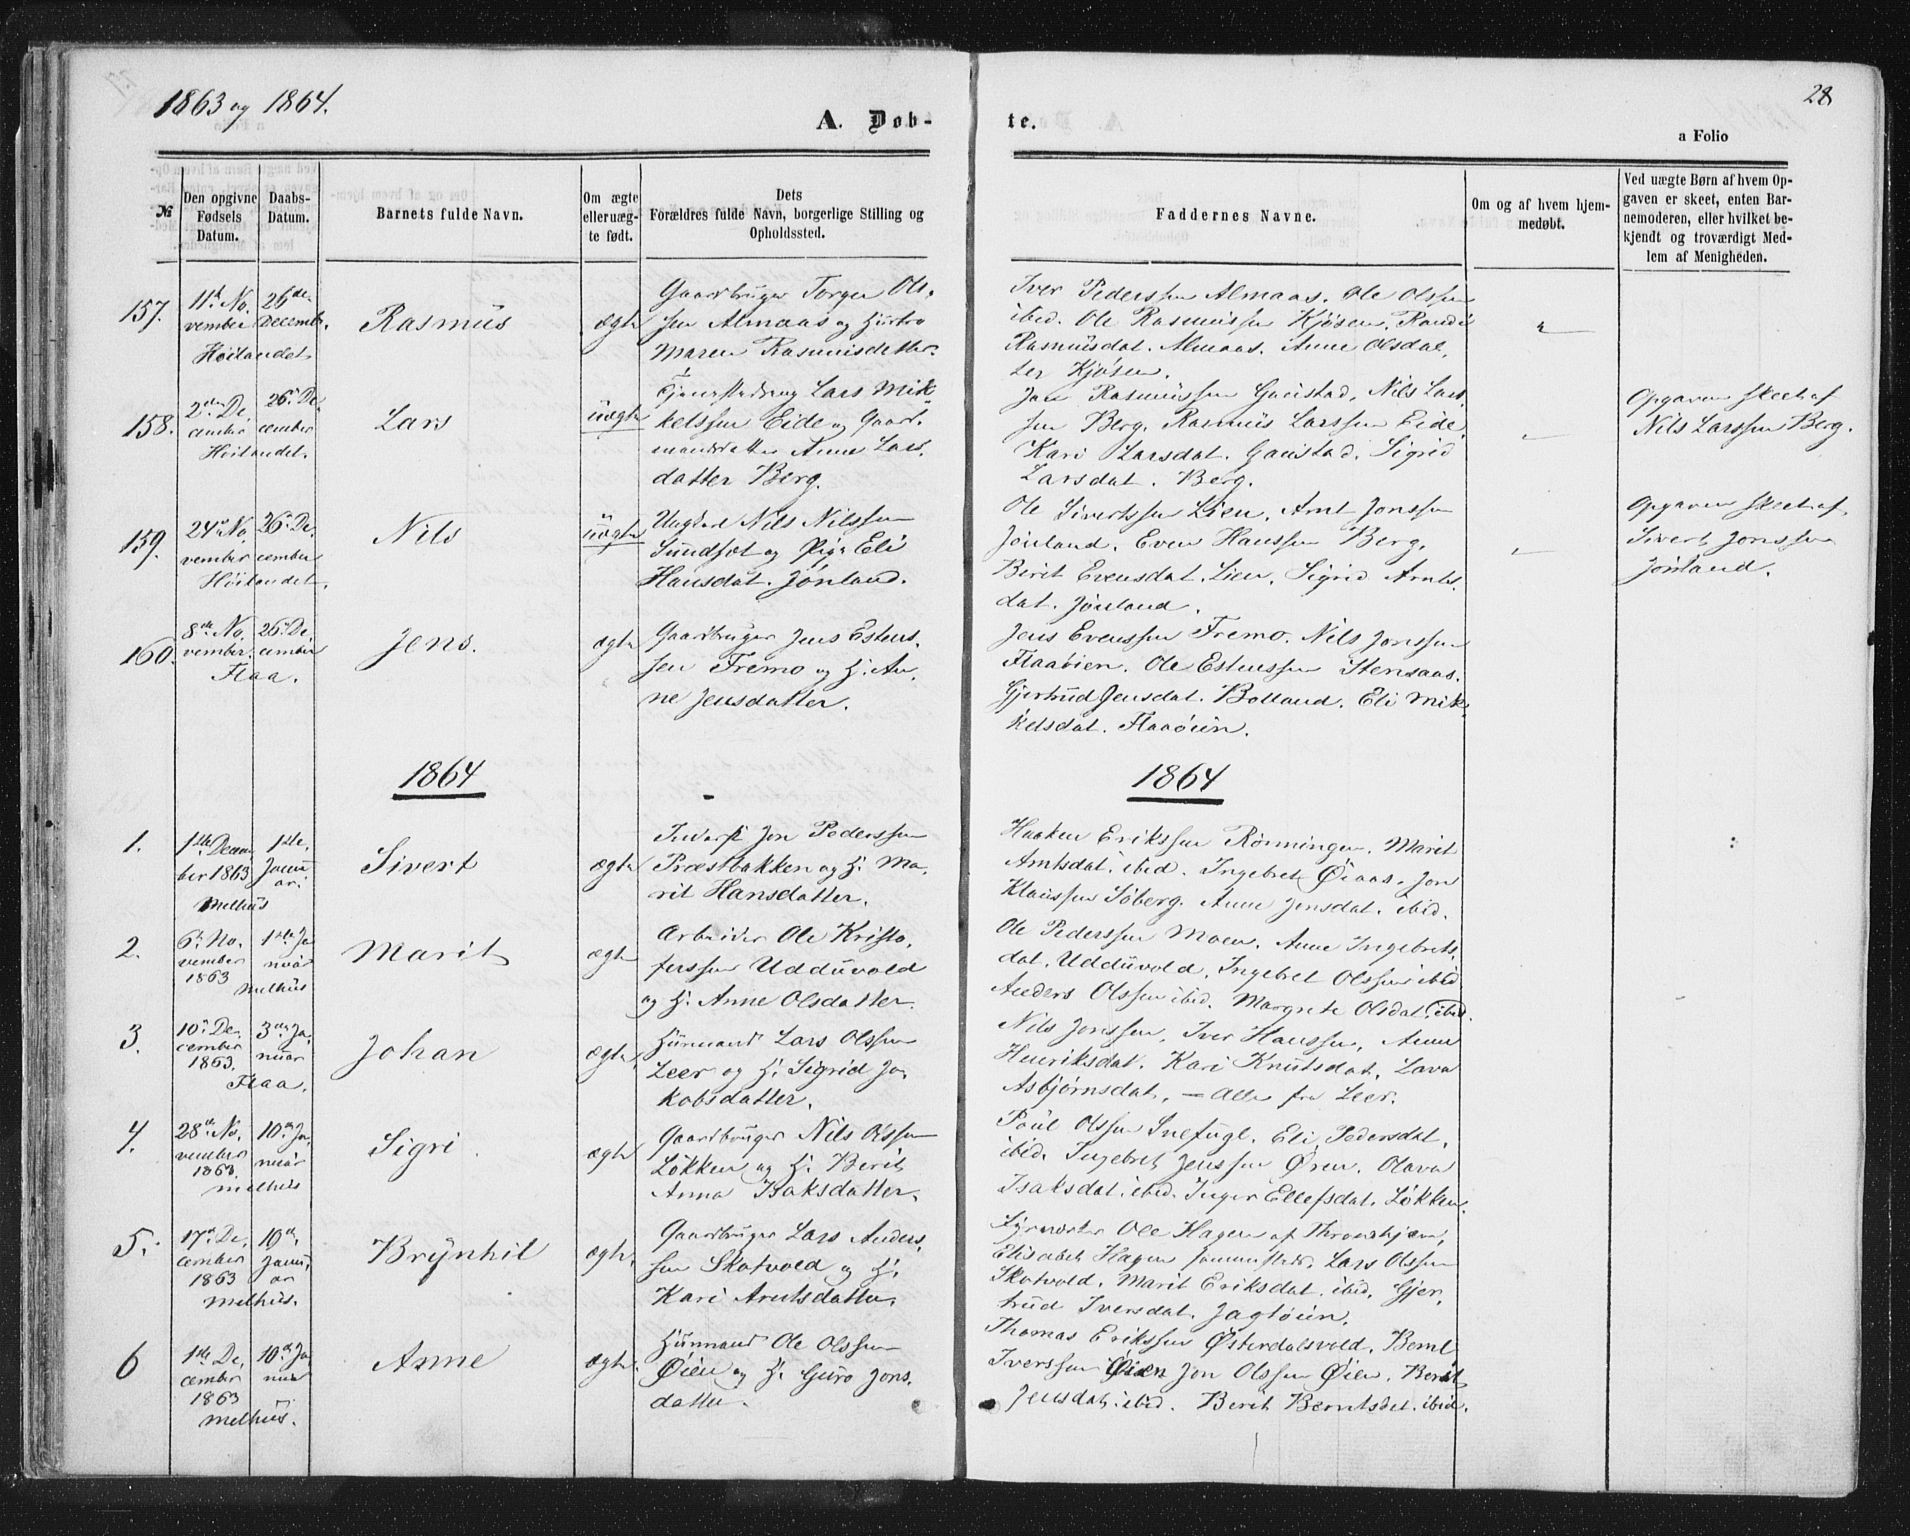 1863 og 1864.
28
A. Døb-
te.
a Folio
№
Den opgivne
Fødsels
Datum.
Daabs-
Datum.
Barnets fulde Navn.
Om ægte
eller uæg-
te født.
Dets
Forældres fulde Navn, borgerlige Stilling og
Opholdssted.
Faddernes Navne.
Om og af hvem hjem-
medøbt.
Ved uægte Børn af hvem Op-
gaven er skeet, enten Bar-
nemoderen, eller hvilket be-
kjendt og troværdigt Med-
lem af Menigheden.
157.
11te No,
vember
Høilandet
26de
Decembr.
Rasmus
ægte
Gaardbruger Torger Ols,
sen Almaas og Hustro
Maren Rasmusdatter.
Iver Pederssen Almaas. Ole Olssen
ibid. Ole Rasmussen Kjøsen, Randi
Rasmusdat. Almaas. Anne Olsdat,
ter Kjøsen.
158.
2den De,
cember
Høilandet.
26de De,
cember
Lars
uægte
Tjenestedreng Lars Mik
kelssen Eide og Gaard,
mandsdatter Anne Lars,
datter Berg.
Jon Rasmussen Gaustad, Nils Lars,
sen Berg. Rasmus Larssen Eide,
Kari Larsdat. Gaustad. Sigrid
Larsdat. Berg.
Opgaven skeet af
Nils Larssen Berg.
159.
24de No,
vember
Høilandet.
26de De,
cember
Nils
uægte
Ungkarl Nils Nilssen
Sundset og Pige Eli
Hansdat. Jønland.
Ole Sivertssen Lien, Arnt Jonssen
Jønland. Even Hanssen Berg.
Berit Evensdat. Lien, Sigrid Arnts,
dat. Jønland.
Opgaven skeet af
Sivert Jonssen
Jønland.
160.
8de No,
vember.
Flaa.
26de De,
cember
Jens.
ægte
Gaardbruger Jens Estens,
sen Fremo og H. An,
ne Jensdatter.
Jens Evenssen Fremo. Nils Jonssen
Flaaøien. Ole Estenssen Stensaas.
Gjertrud Jensdat. Bolland. Eli Mik,
kelsdat. Flaaøien.
1864
1864
1.
1ste Decem,
ber 1863
Melhus
1ste
Janu,
ar
Sivert
ægte
Inderst Jon Pederssen
Præstbakken og H. Ma,
rit Hansdatter.
Haaken Erikssen Rønningen. Marit
Arntsdat. ibid. Ingebret Øiaas. Jon
Klaussen Søberg. Anne Jonsdat. ibid.
2.
6te No,
vember
1863
Melhus
1ste Ja
nuar
Marit
ægte
Arbeider Ole Kristo,
ferssen Udduvold
og H. Anne Olsdatter.
Ole Pederssen Moen. Anne Ingebrets,
dat. Udduvold, Ingebret Olssen ibid
Anders Olssen ibid. Margrete Olsdat. ibid.
3.
10de De,
cember
1863.
Flaa,
3die Ja,
nuar
Johan
ægte.
Husmand Lars Olssen
Leer og H. Sigrid Ja,
kobsdatter.
Nils Jonssen, Iver Hanssen, Anne
Henriksdat. Kari Knutsdat. Lava
Asbjørnsdat. — Alle fra Leer.
4.
28de No,
vember
1863.
Melhus
10de Ja,
nuar
Sigri
ægte
Gaardbruger Nils Olssen
Løkken og H. Berit
Anna Isaksdatter.
Poul Olssen Snefugl. Eli Pedersdat.
ibid. Ingebret Jenssen Øren. Olava
Isaksdat. ibid. Inger Ellefsdat. Løkken.
5.
17de De,
cember
1863
Melhus.
10de
Janu,
ar
Brynhil
ægte.
Gaardbruger Lars Anders,
sen Skotvold og H.
Kari Arntsdatter.
Fyrvorter Ole Hagen af Throndhjem,
Elisabet Hagen sammesteds. Lars Olssen
Skotvold. Marit Eriksdat. ibid. Gjer,
trud Iversdat. Jagtøien.
6
1ste De,
cember
1863
Melhus.
10de Ja
nuar
Anne
ægte.
Husmand Ole Olssen
Øien og H. Guro Jons,
datter.
Thomas Erikssen Østerdalsvold. Bernt
Iverssen Øien Jon Olssen Øien. Berit
Jensdat. ibid. Berit Berntsdat. ibid.